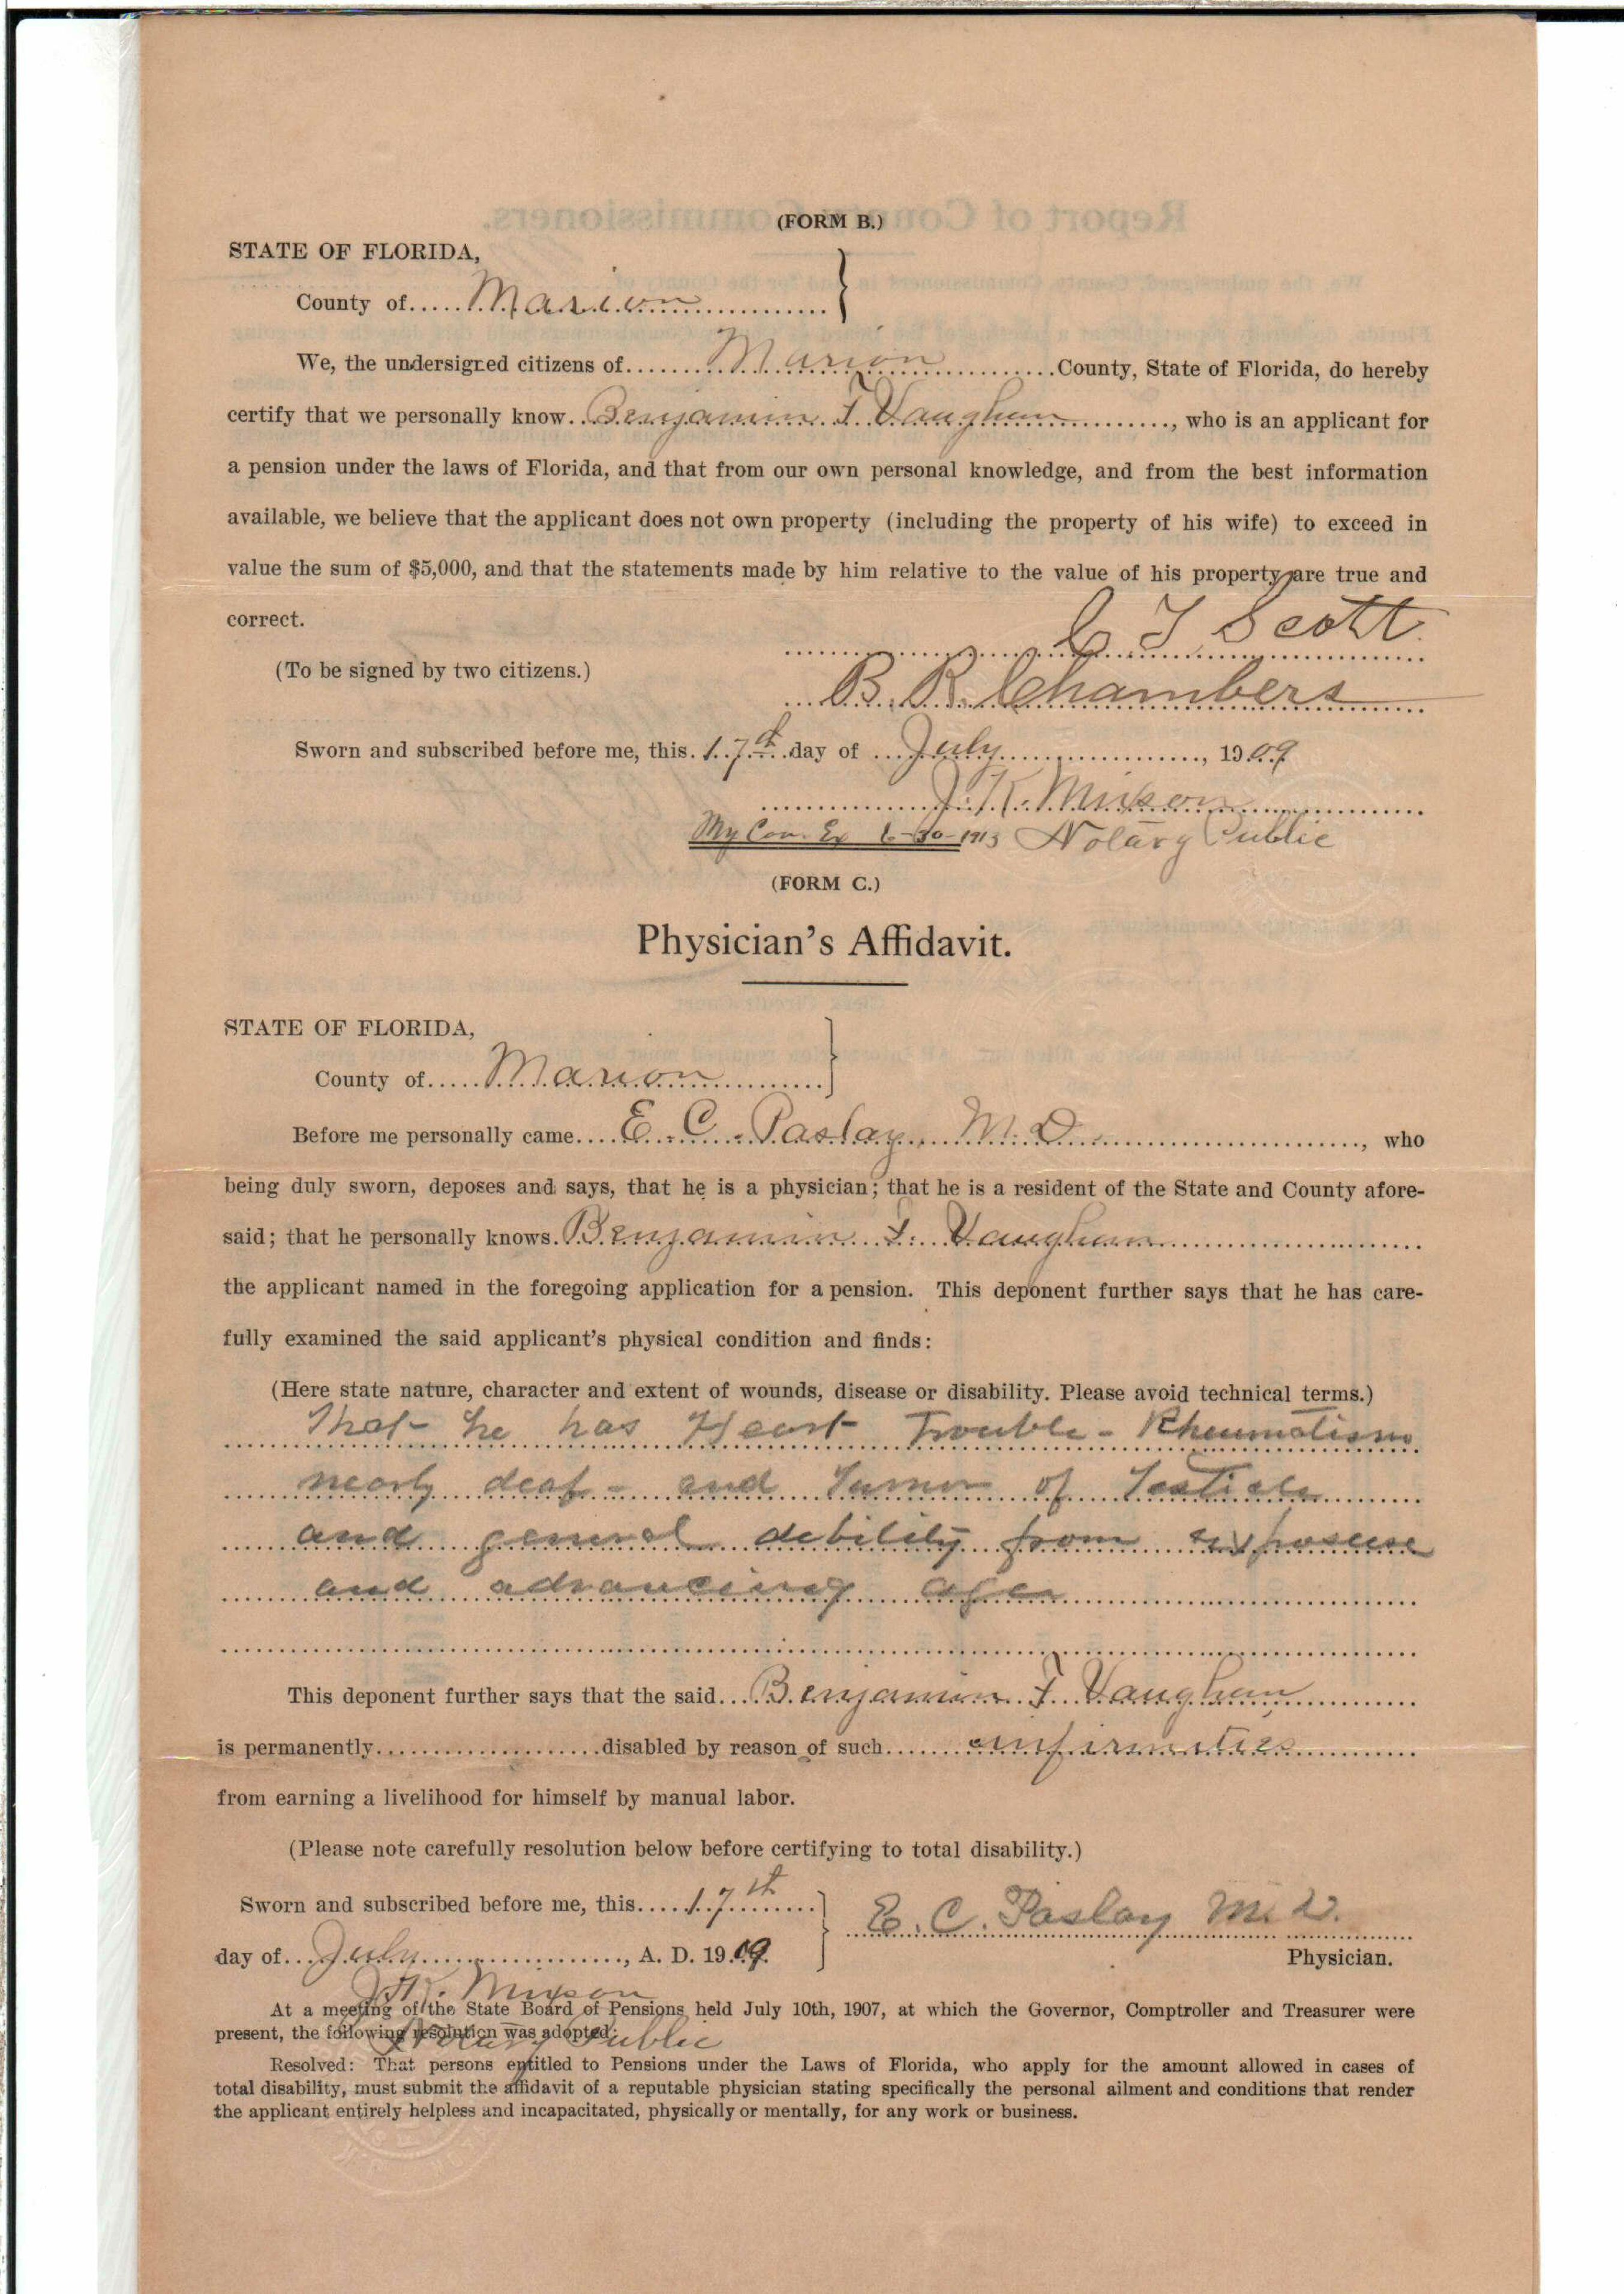 (FORM B.)
STATE OF FLORIDA,
County of Marion
We, the undersigned citizens of Marion County, State of Florida, do hereby
certify that we personally know Benjamin F. Vaughan, who is an applicant for
a pension under the laws of Florida, and that from our own personal knowledge, and from the best information
available, we believe that the applicant does not own property (including the property of his wife) to exceed in
value the sum of $5,000, and that the statements made by him relative to the value of his property are true and
correct.
C T Scott
(To be signed by two citizens.)
B. R. Chambers
Sworn and subscribed before me, this 17th day of July, 1909
J. K. Mixson
My Com. Ex 6-30-1913 Notary Public
(FORM C.)
Physician's Affidavit.
STATE OF FLORIDA,
County of Marion
Before me personally came E. C. Paslay, M. D., who
being duly sworn, deposes and says, that he is a physician; that he is a resident of the State and County afore-
said; that he personally knows Benjamin F. Vaughan
the applicant named in the foregoing application for a pension. This deponent further says that he has care-
fully examined the said applicant's physical condition and finds:
(Here state nature, character and extent of wounds, disease or disability. Please avoid technical terms.)
That he has Heart Trouble - Rheumatism
nearly deaf - and Tumor of Testicle
and general debility from exposure
and advancing age
This deponent further says that the said Benjamin F. Vaughan
is permanently disabled by reason of such infirmities
from earning a livelihood for himself by manual labor.
(Please note carefully resolution below before certifying to total disability.)
Sworn and subscribed before me, this 17th
E. C. Paslay M. D.
day of July, A. D. 1909.
Physician.
J. K. Mixson
At a meeting of the State Board of Pensions held July 10th, 1907, at which the Governor, Comptroller and Treasurer were
present, the following resolution was adopted:
Notary Public
Resolved: That persons entitled to Pensions under the Laws of Florida, who apply for the amount allowed in cases of
total disability, must submit the affidavit of a reputable physician stating specifically the personal ailment and conditions that render
the applicant entirely helpless and incapacitated, physically or mentally, for any work or business.